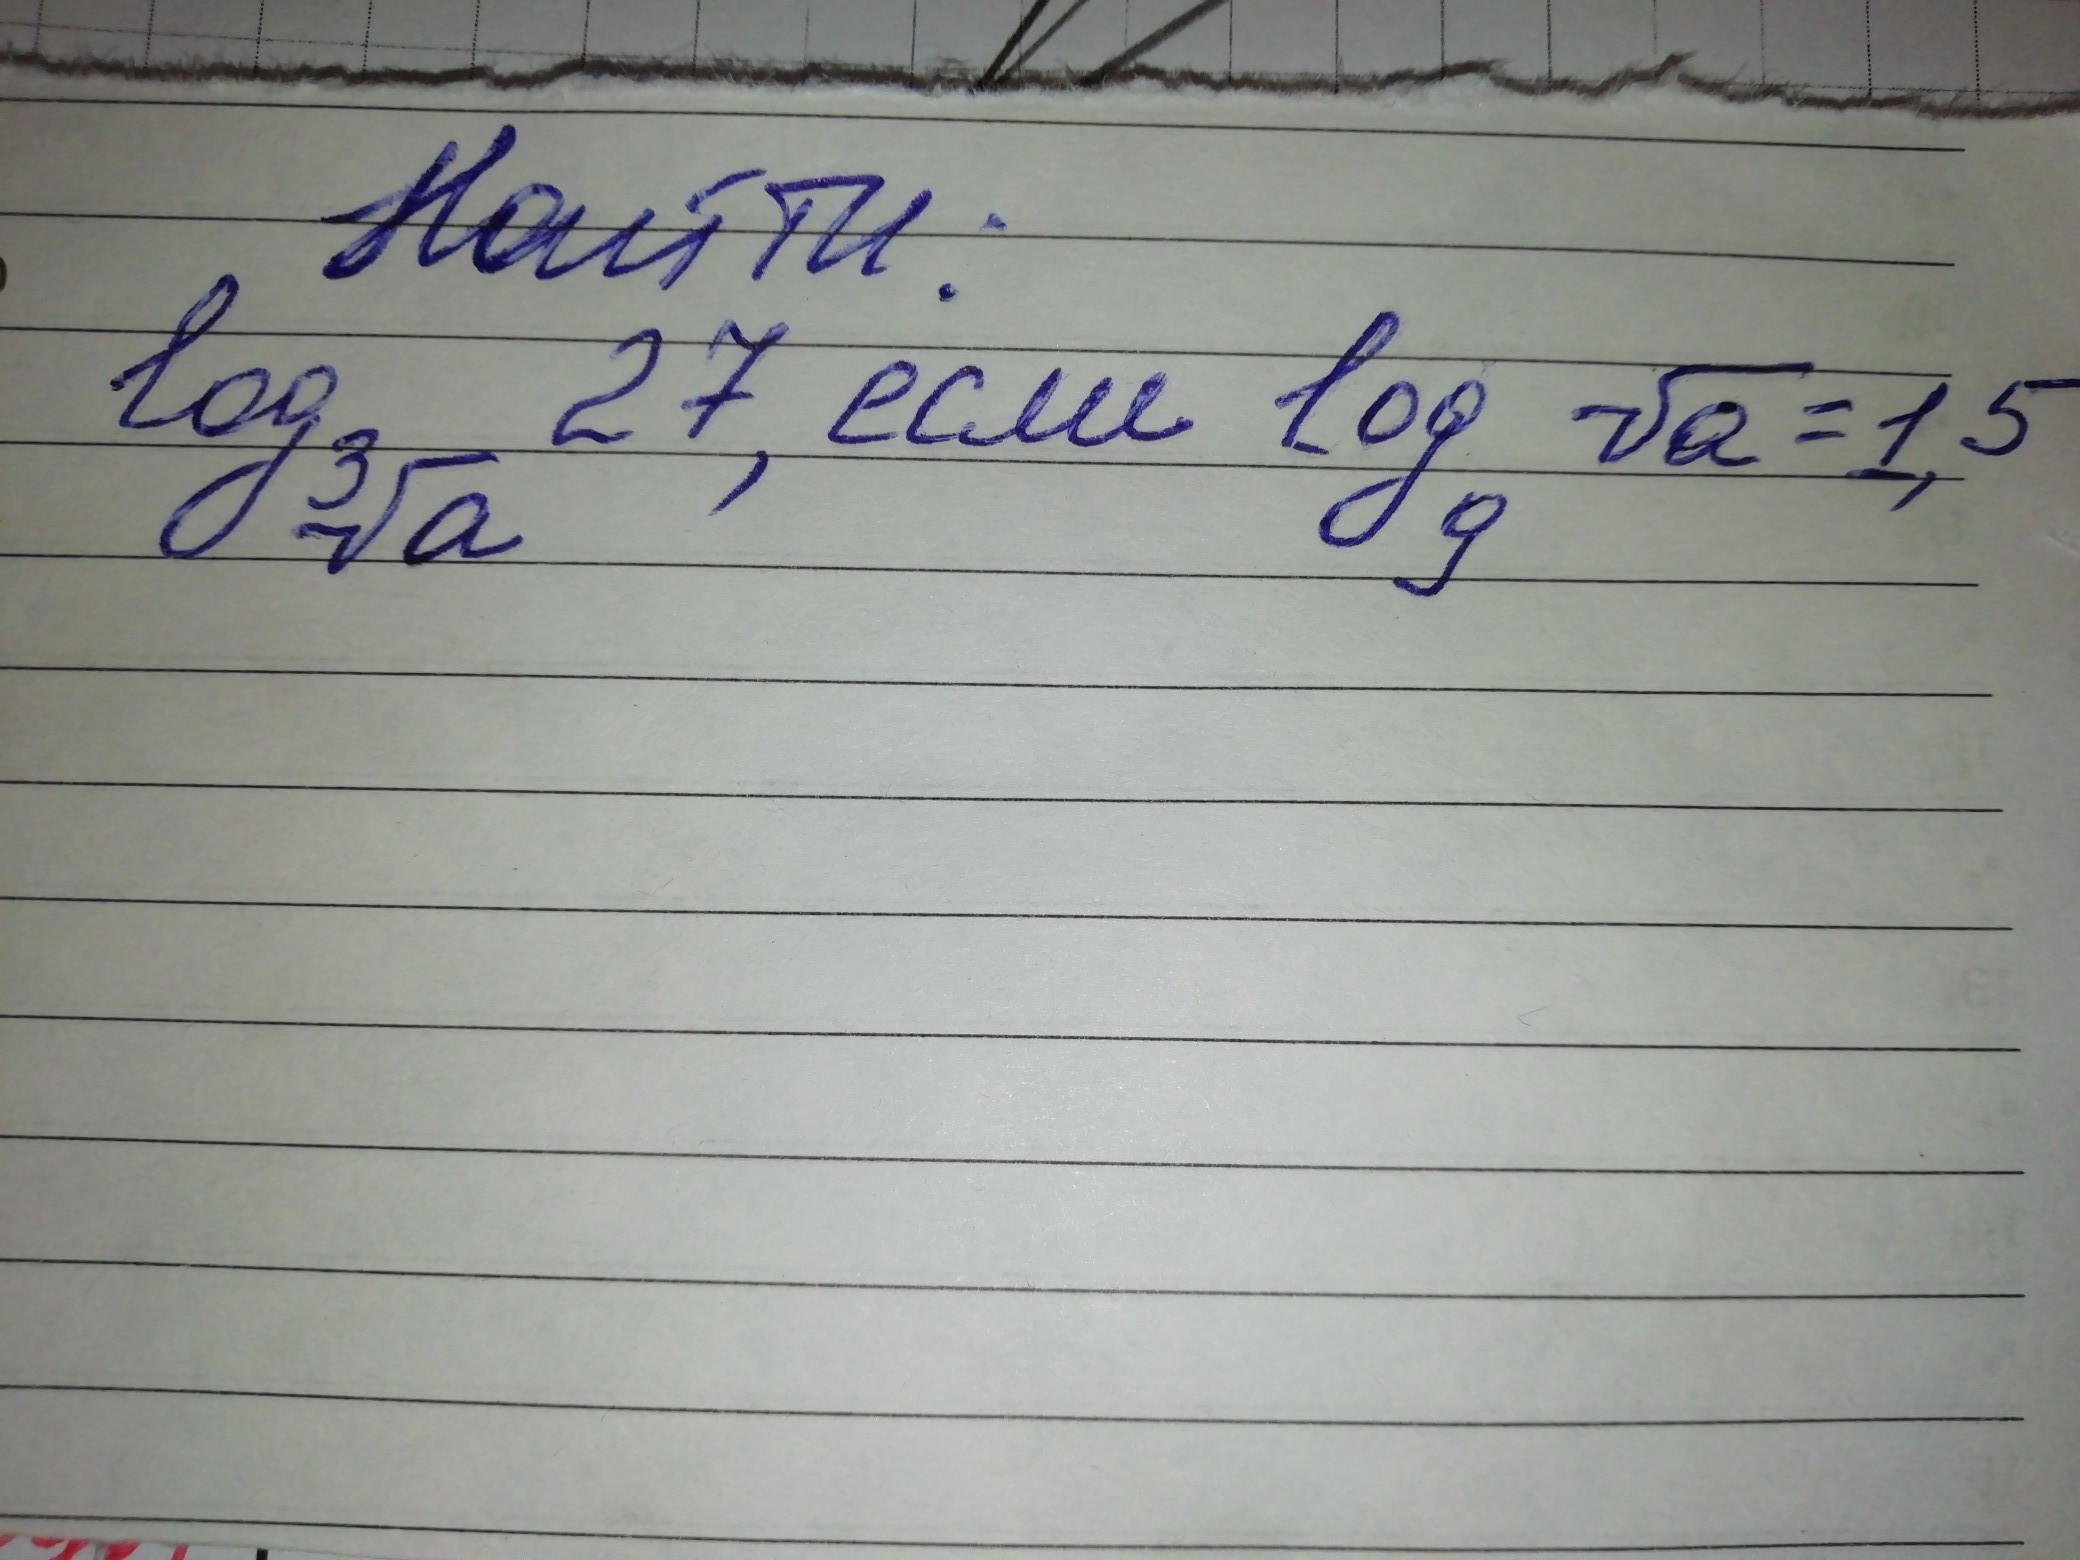 Найти:
log_∛a 27, если log_9 √a = 1,5